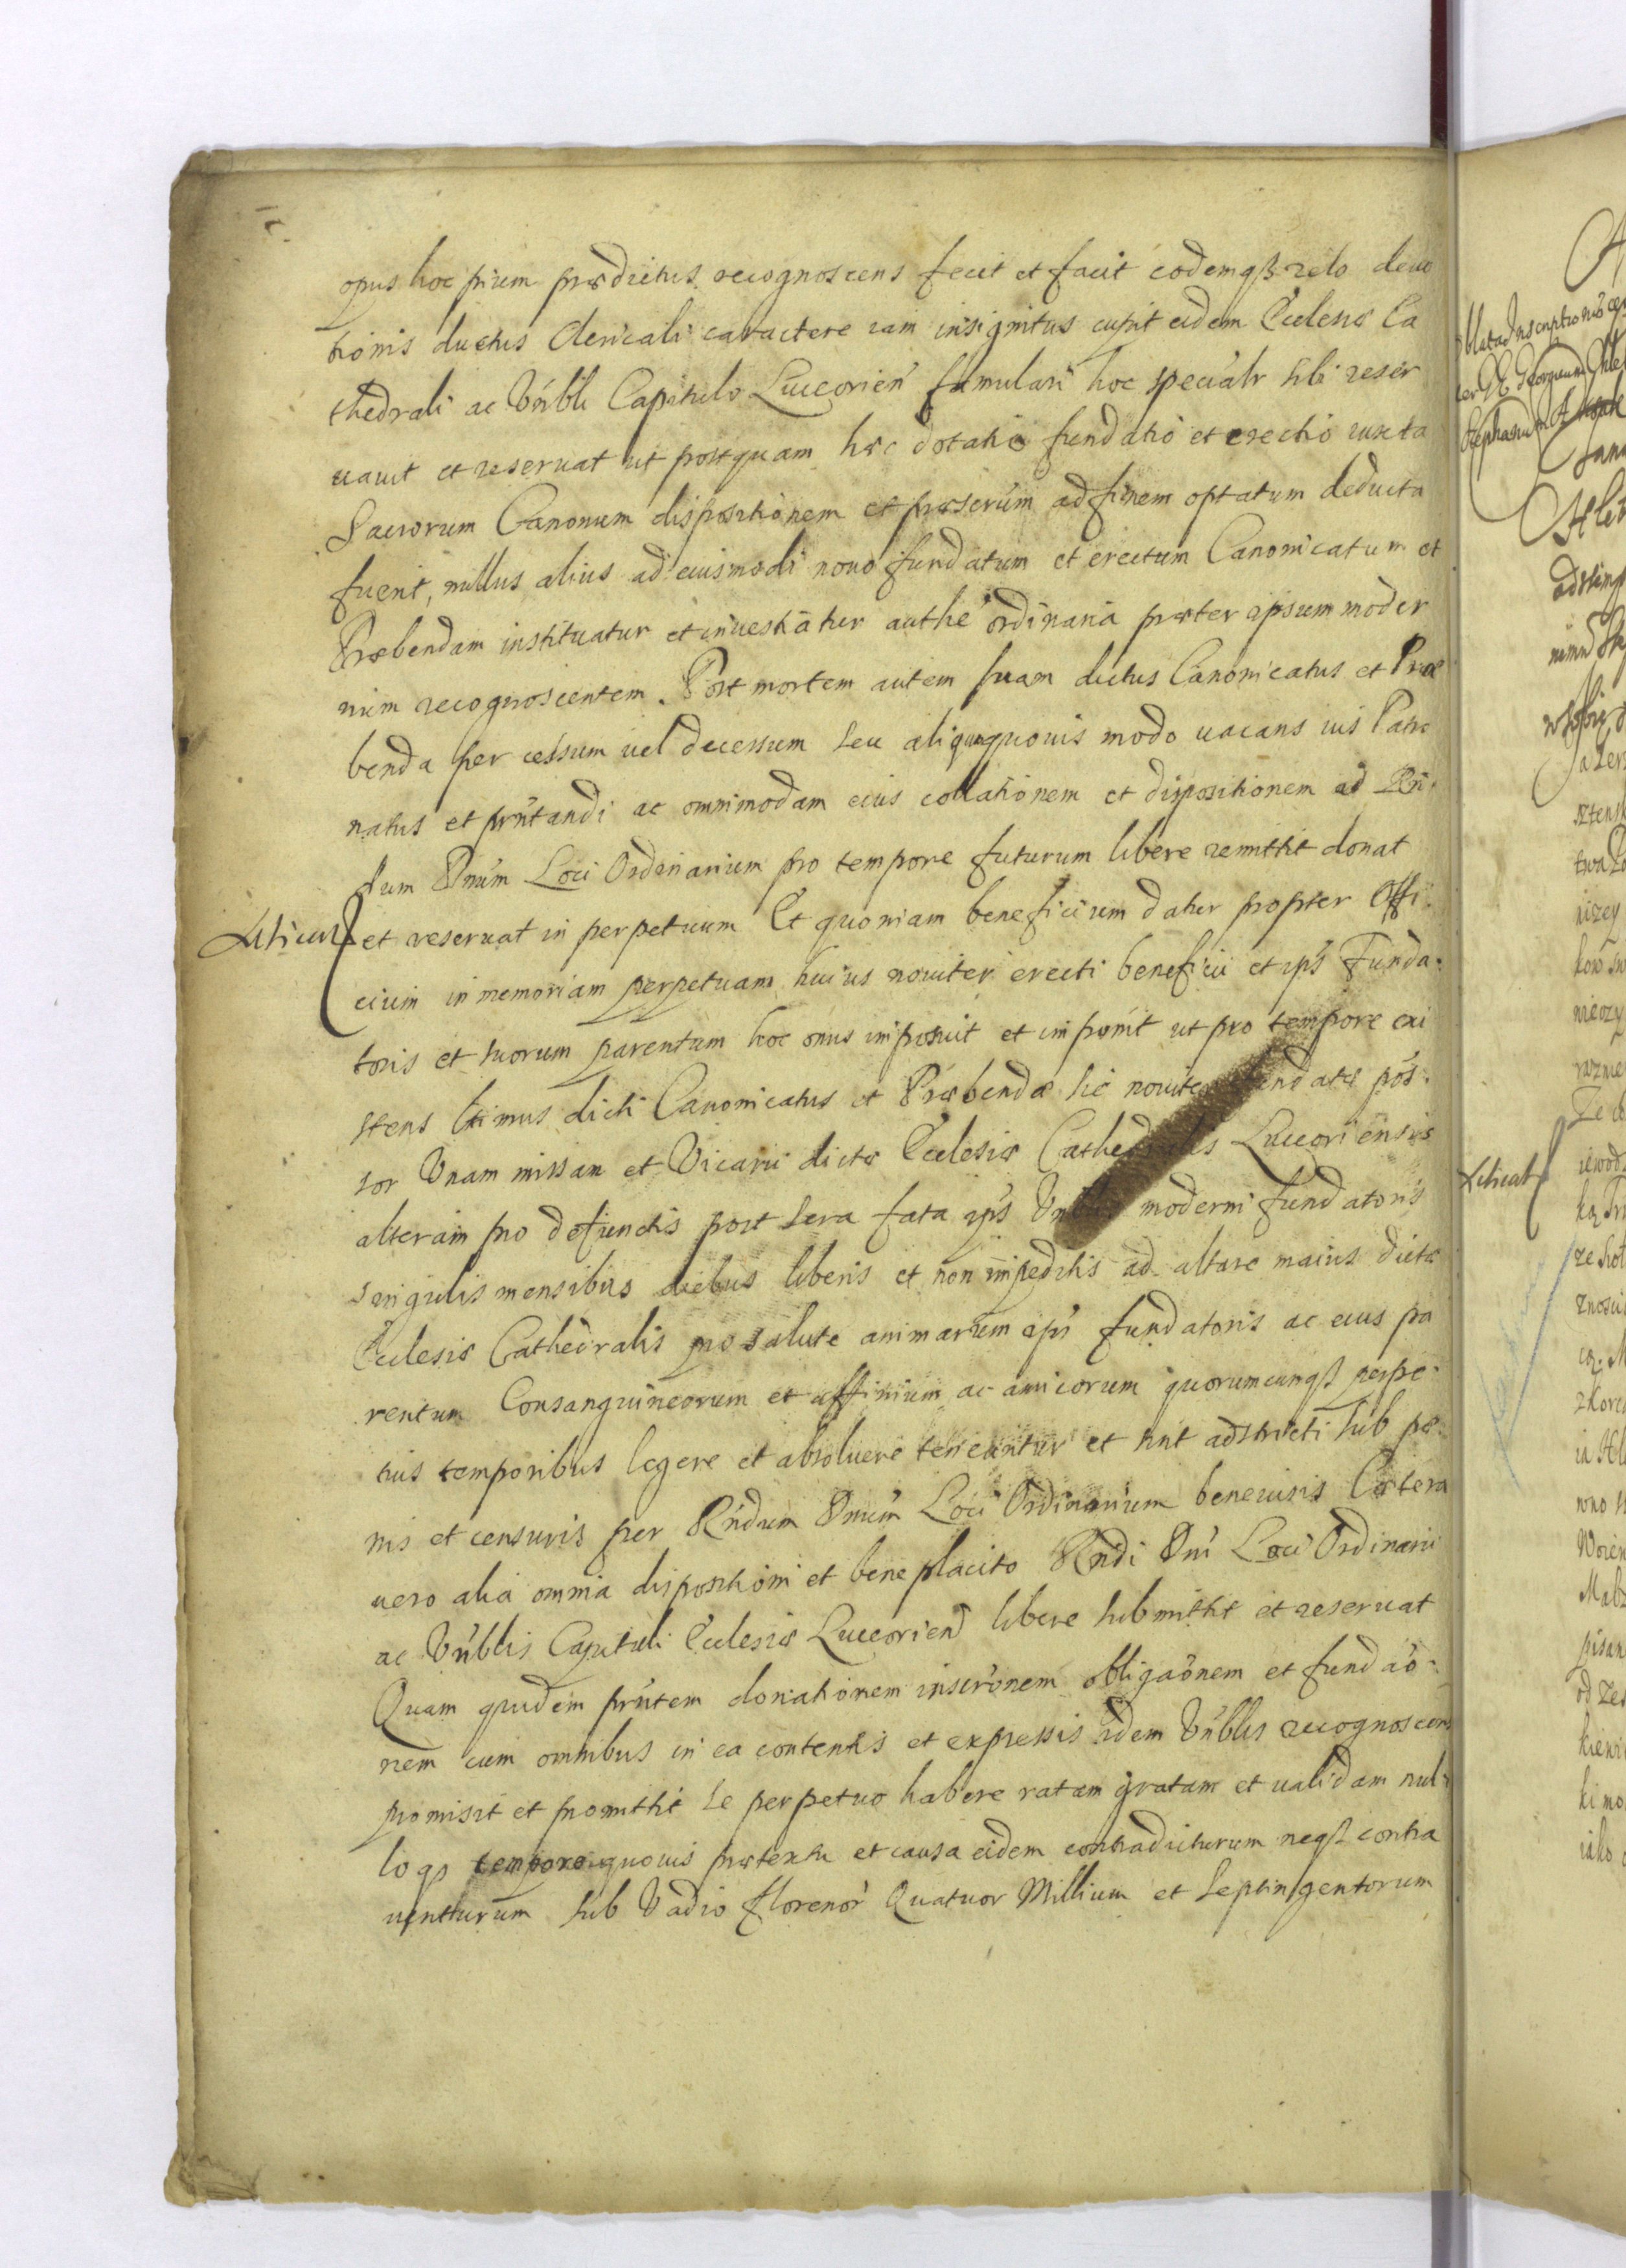 opus hoc pium prædictus recognoscens fecit et facit eodemqß zelo devo
tionis ductus Clericali caractere iam insignitus cupit eidem Ecclesiæ Ca
thedrali ac Vnbli Capitulo Luceorien famulari hoc specialr sibi reser
uauit et reseruat ut postquam hæc dotatio fundatio et erectio iuxta
Sacrorum Canonum dispositionem et ad finem optatum deducta
fuerit, nullus alius ad eiusmodi nouo fundatum et erectum Canonicatum et
Præbendam instituatur et inuestiatur authe ordinaria præter ipsum moder
num recognoscentem. Post mortem autem suam dictus Canonicatus et Præ
benda per cessum uel decessum seu aliqua quouis modo uacans ius Patro
natus et pnтandi ac omnimodam eius collationem et dispositionem ad Rn
dum Dnum Loci Ordinarium pro tempore futurum libere remittit donat
et reseruat in perpetuum Et quoniam beneficium datur propter Offi
cium in memoriam perpetuam huius nouiter erecti beneficii et ips Funda
toris et suorum parentum hoc onus imposuit et imponit ut pro tempore exi
stens ltimus dicti Canonicatus et Præbendæ sic nouiter fundatæ pos
sor Vnam missam et Vicarii dictæ Ecclesiæ Cathedralis Luceoriensis
alteram pro defunctis post sera fata ips Vnblis moderni fundatoris
singulis mensibus diebus liberis et non impeditis ad altare maius dictæ
Ecclesiæ Cathedralis pro salute animarum ips fundatoris ac eius pa
rentum Consanguineorum et affinium ac amicorum quorumcunqß perpe
tuis temporibus legere et absoluere teneantur et sint adstricti sub pæ
nis et censuris per Rndum Dnum Loci Ordinarium beneuisis Cætera
uero alia omnia dispositioni et bene placito Rndi Dni Loci Ordinarii
ac Vnblis Capituli Ecclesiæ Luceorien libere submittit et reseruat
Quam quidem prntem donationem inscronem obligaonem et fundao
nem cum omnibus in ea contentis et expressis idem Vnblis recognoscens
promisit et promittit se perpetuo habere ratam gratam et ualidam nul
loqs tempore quouis prætextu et causa eidem contradicturum neqß contra
uenturum sub Vadio florenor Quatuor Millium et Septingentorum